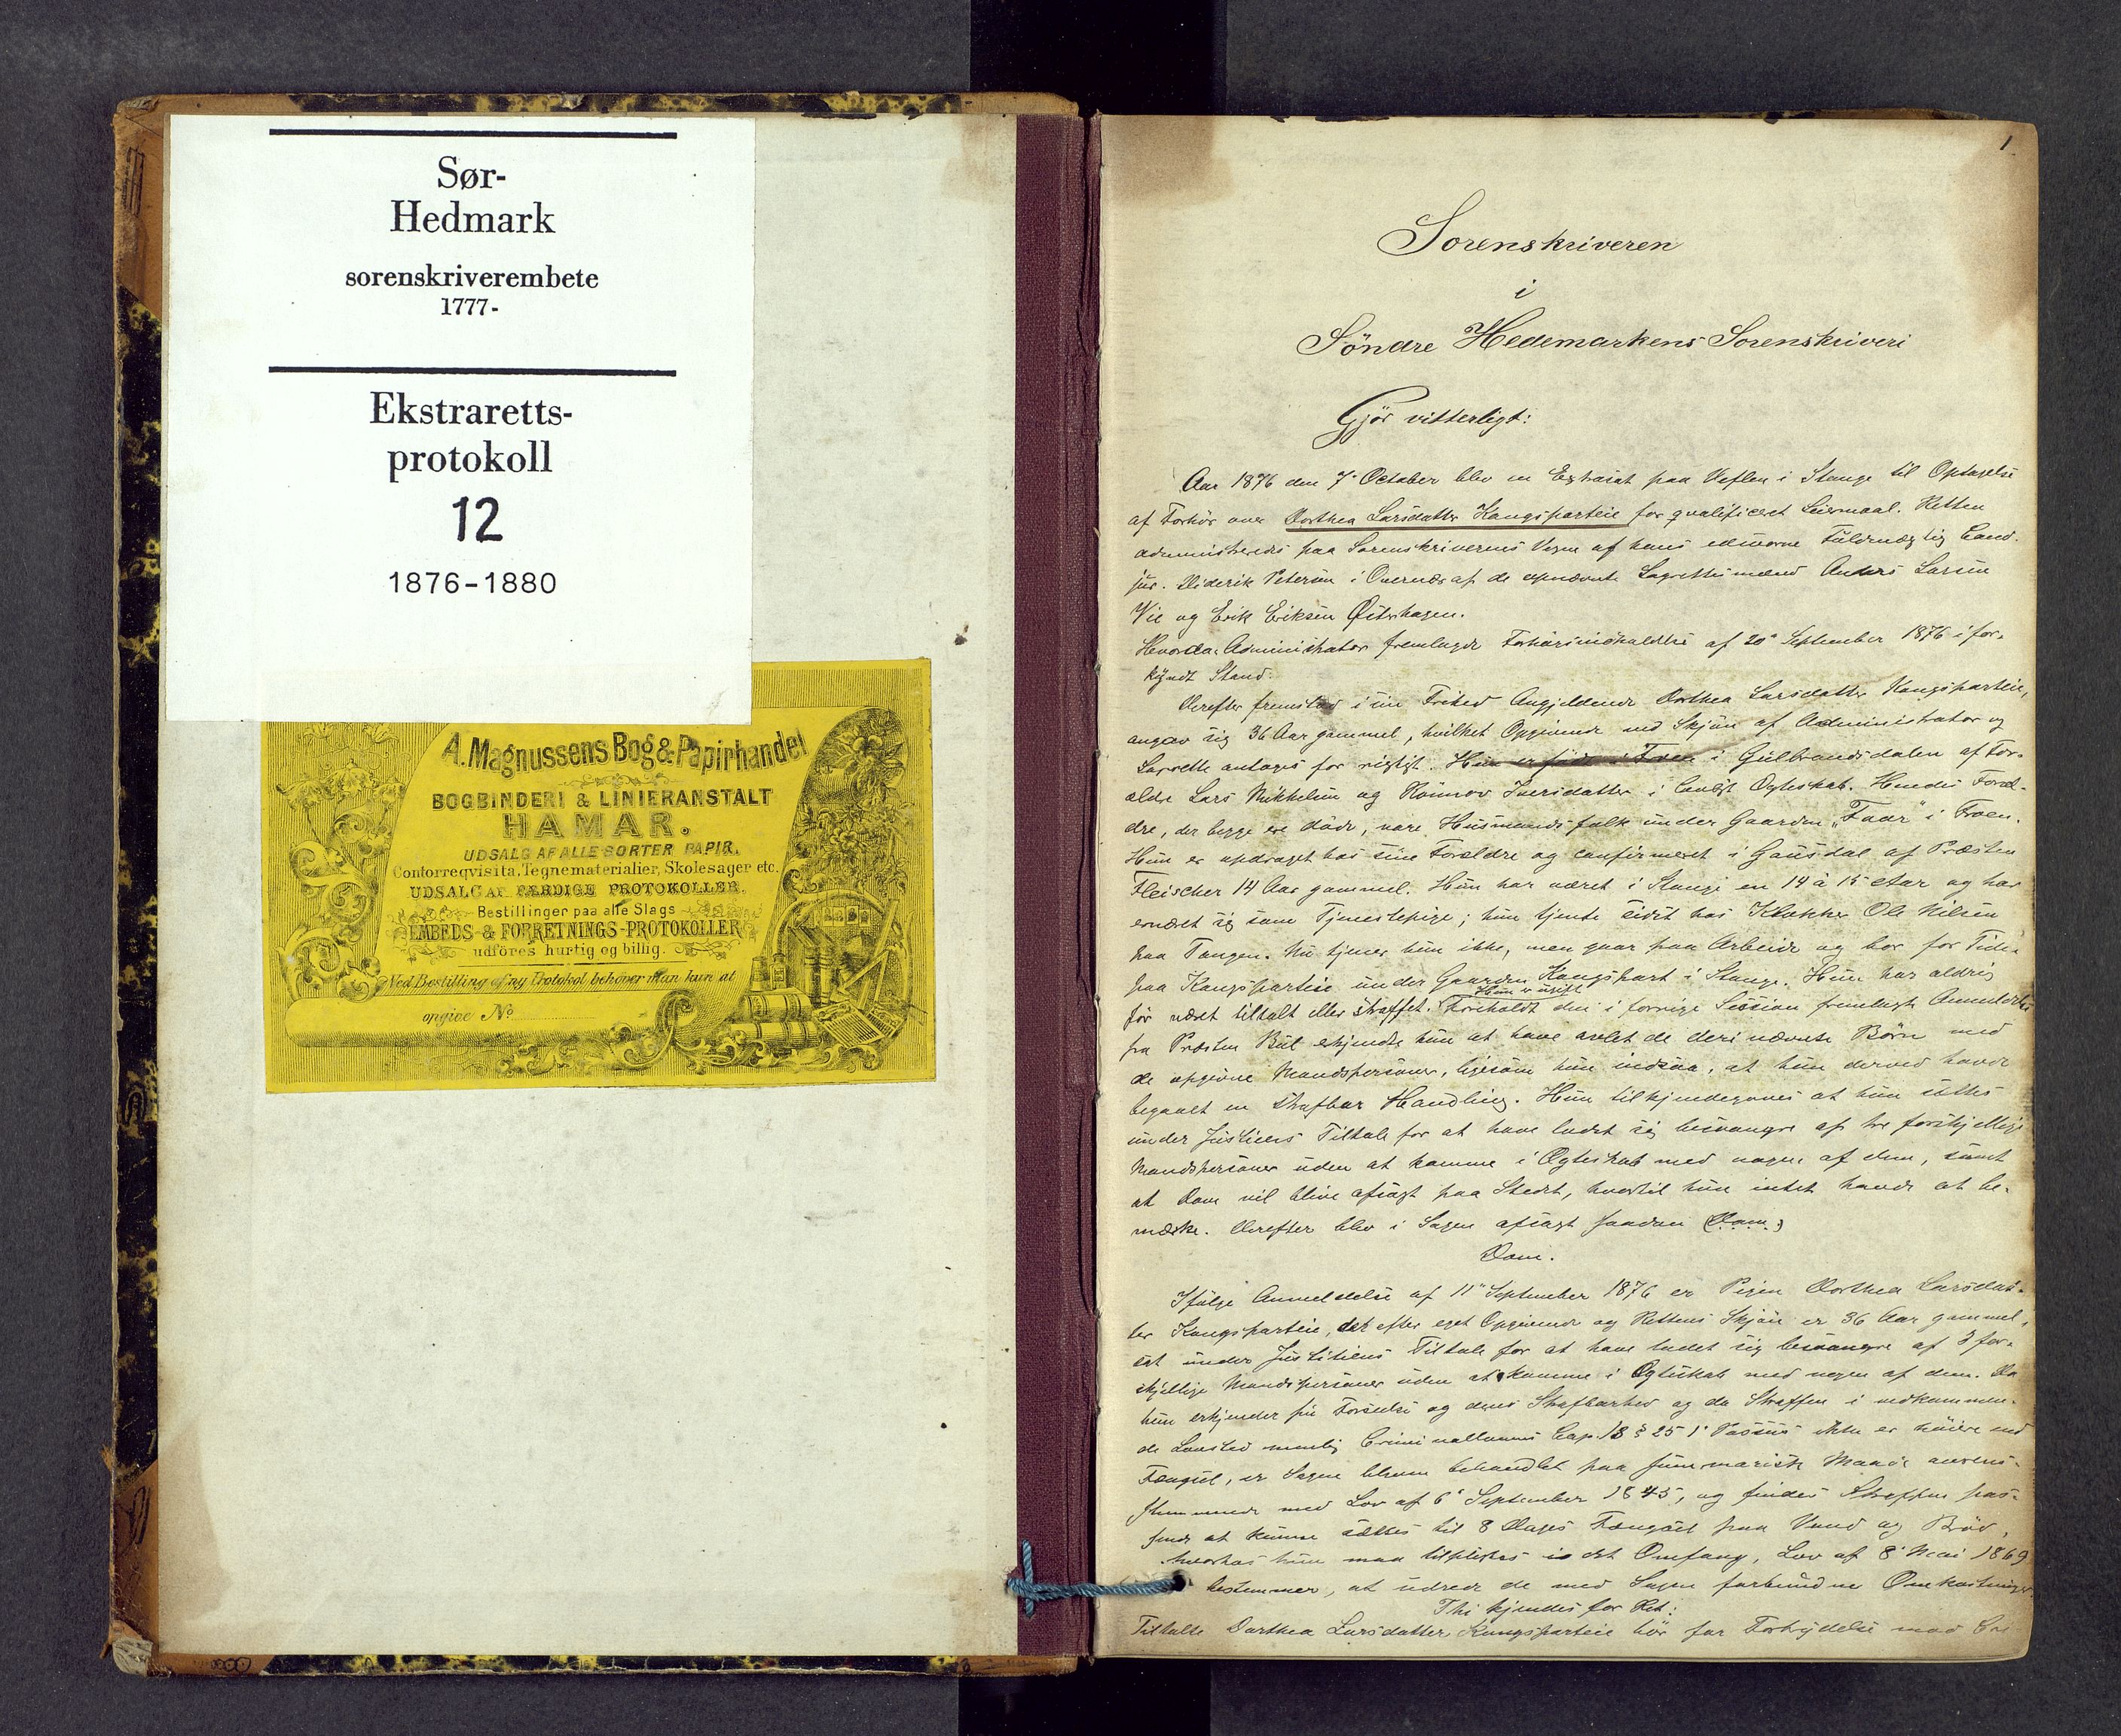 Sør-
Hedmark
sorenskriverembete
1777-
Ekstraretts-
protokoll
12
1876-1880
A. Magnussens Bog & Papirhandel
BOGBINDERI & LINIERANSTALT
HAMAR.
UDSALG AF ALLE SORTER PAPIR.
Contorreqvisita, Tegnematerialier, Skolesager etc.
UDSALG AF FÆRDIGE PROTOKOLLER.
Bestillinger paa alle Slags
EMBEDS- & FORRETNINGS-PROTOKOLLER
udföres hurtig og billig.
Ved Bestilling af ny Protokol behöver man kun at
opgive No
1
Sorenskriveren
i
Söndre Hedemarkens Sorenskriveri
Gjör vitterligt:
Aar 1876 den 7de October blev en Extraret paa Veflen i Stange til Optagelse
af Forhör over Dorthea Larsdatter Kangsparteie for qvalificeret Leiermaal. Retten
administreredes paa Sorenskriverens Vegne af hans edsvorne Fuldmægtig Cand.
jur. Diderik Petersen i Overvær af de opnævnte Lagrettesmænd Anders Larsen
Vie og Erik Eriksen Östhagen.
Hvorda: Administrator fremlagde Forhörsindkaldelse af 20de September 1876 i for-
kyndt Stand.
Derefter fremstod i sin Frihed Angjeldende Dorthea Larsdatter Kangsparteie,
angav sig 36 Aar gammel, hvilket Opgivende ved Skjön af Administrator og
Lagrette antages for rigtigt. Hun er födt i Froen i Gulbrandsdalen af For-
ældre Lars Mikkelsen og Iversdatter i lovligt Ægteskab. Hendes Foræl-
dre, der begge ere döde, vare Husmandsfolk under Gaarden "Faar" i Froen.
Hun er opdraget hos sine Forældre og confirmeret i Gausdal af Præsten
Fleischer 14 Aar gammel. Hun har været i Stange en 14 à 15 Aar og har
ernæret sig som Tjenestepige; hun tjente sidst hos Klokker Ole Nilsen
paa Tangen. Nu tjener hun ikke, men gaar paa Arbeide og bor for Tiden
paa Kangsparteie under Gaarden Kangspart i Stange. Hun har aldrig
Hun er ugift
för været tiltalt eller straffet. Foreholdt den i forrige Session fremlagte Anmeldelse
fra Præsten Bul erkjendte hun at have avlet de deri nævnte Börn med
de opgivne Mandspersoner, ligesom hun indsaa, at hun derved havde
begaaet en strafbar Handling. Hun tilkjendegaves at hun sættes
under Justitiens Tiltale for at have ladet sig besvangre af tre forskjellige
Mandspersoner uden at komme i Ægteskab med nogen af dem, samt
at Dom vil blive afsagt paa Stedet, hvortil hun intet havde at be-
mærke. Derefter blev i Sagen afsagt saadan (Dom)
Dom.
Ifölge Anmeldelse af 11te September 1876 er Pigen Dorthea Larsdat-
ter Kangsparteie, der efter eget Opgivende og Rettens Skjön er 36 Aar gammel,
sat under Justitiens Tiltale for at have ladet sig besvangre af 3 for-
skjellige Mandspersoner uden at komme i Ægteskab med nogen af dem. Da
hun erkjender sin Forseelse og dens Strafbarhed og da Straffen i vedkommen-
de Lovsted nemlig Criminallovens Cap. 18 § 25 1ste Passus ikke er höiere end
Fængsel, er Sagen bleven behandlet paa summarisk Maade overens-
stemmende med Lov af 6te September 1845, og findes Straffen pas-
sende at kunne sættes til 8 Dages Fængsel paa Vand og Bröd,
hvorhos hun maa tilpligtes i det Omfang, Lov af 8de Mai 1869
bestemmer, at udrede de med Sagen forbundne Omkostninger.
Thi kjendes for Ret:
Tiltalte Dorthea Larsdatter Kangsparteie bör for Forbrydelse mod Cri-